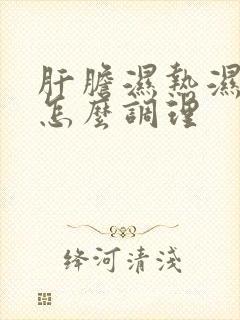 肝膽濕熱濕
怎麼調理
絳河清淺